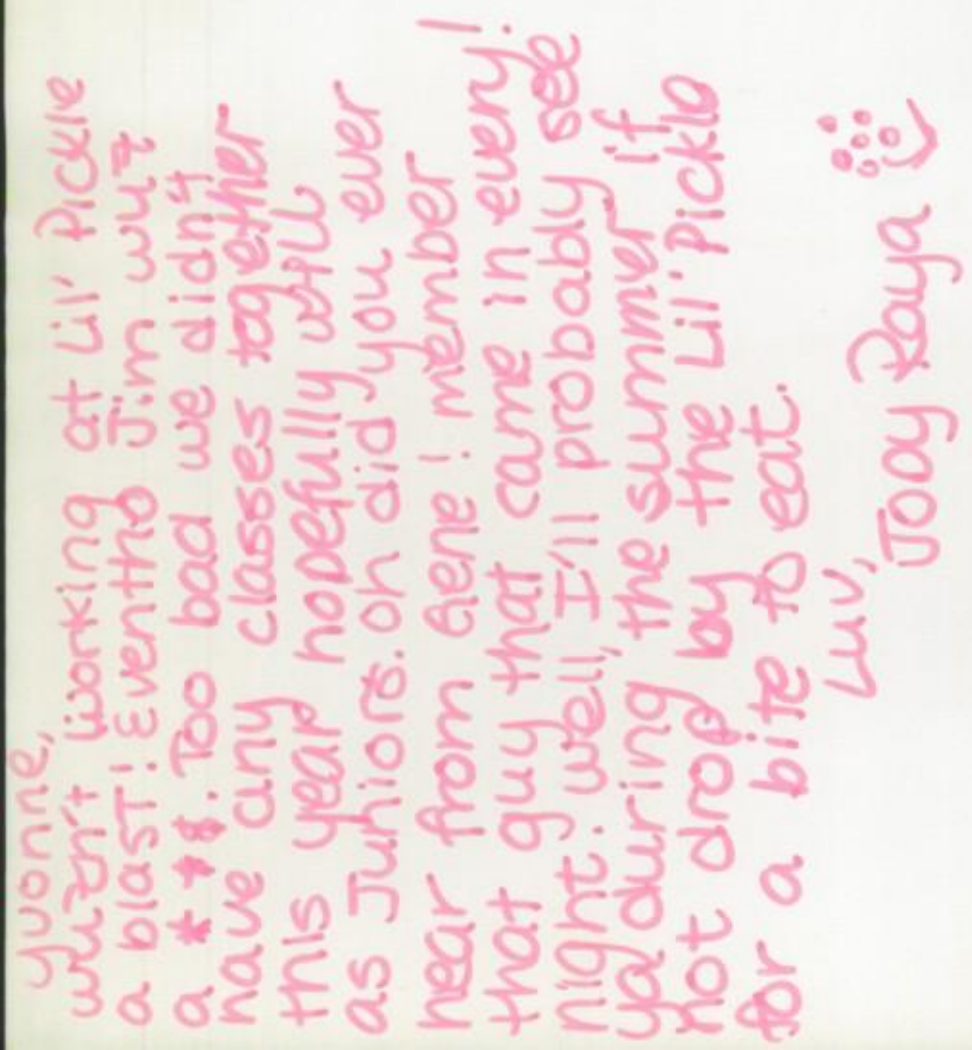 Yvonne,
wuzn't working at Lil' Pickle
a blast! Eventho Jim wuz
a ***. Too bad we didn't
have any classes together
this year hopefully will
as Juniors. Oh did you ever
hear from Gene! member
that guy that came in every!
night. well, I'll probably see
ya during the summer if
not drop by the Lil' Pickle
for a bite to eat.
Luv,
Joay Raya